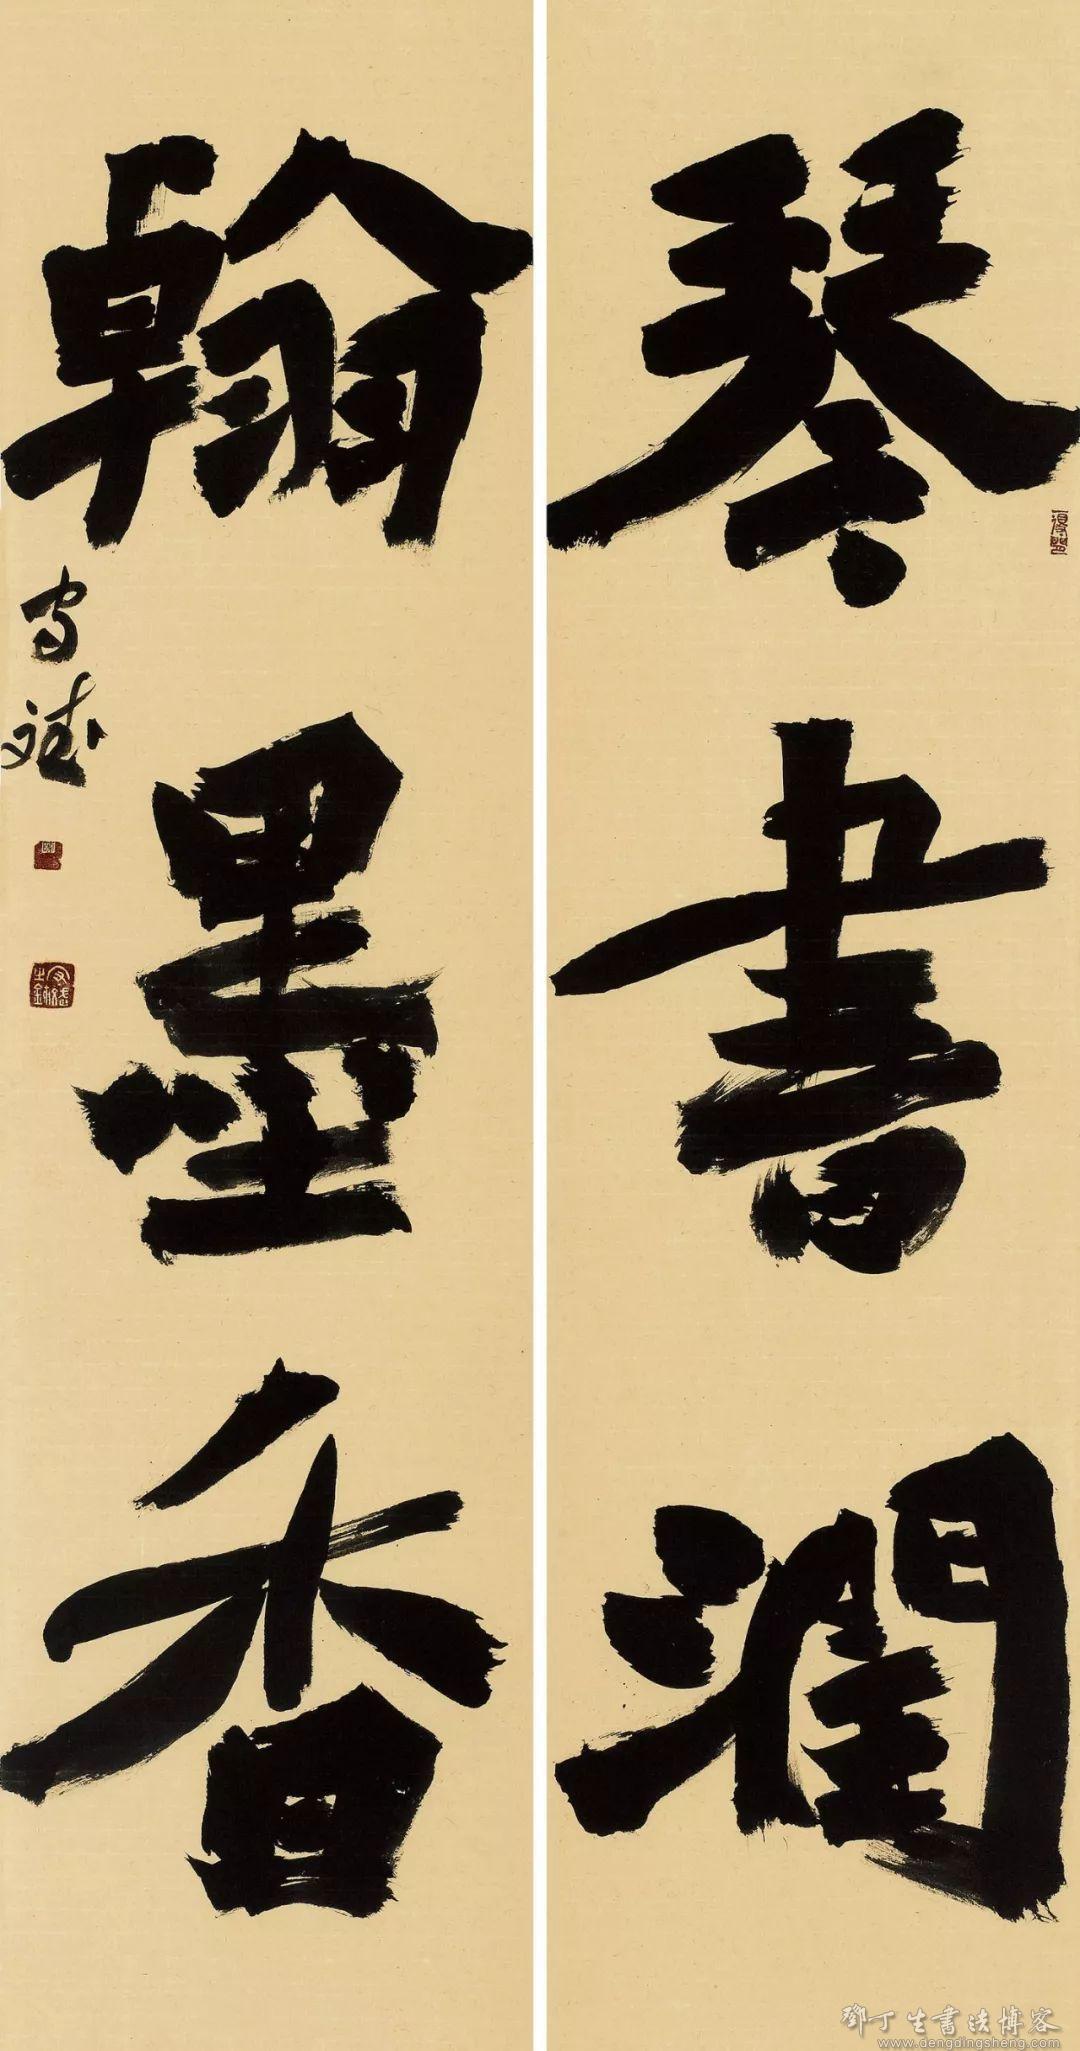 琴書潤
翰墨香
守斌
鄧丁生書法博客
www.dengdingsheng.com